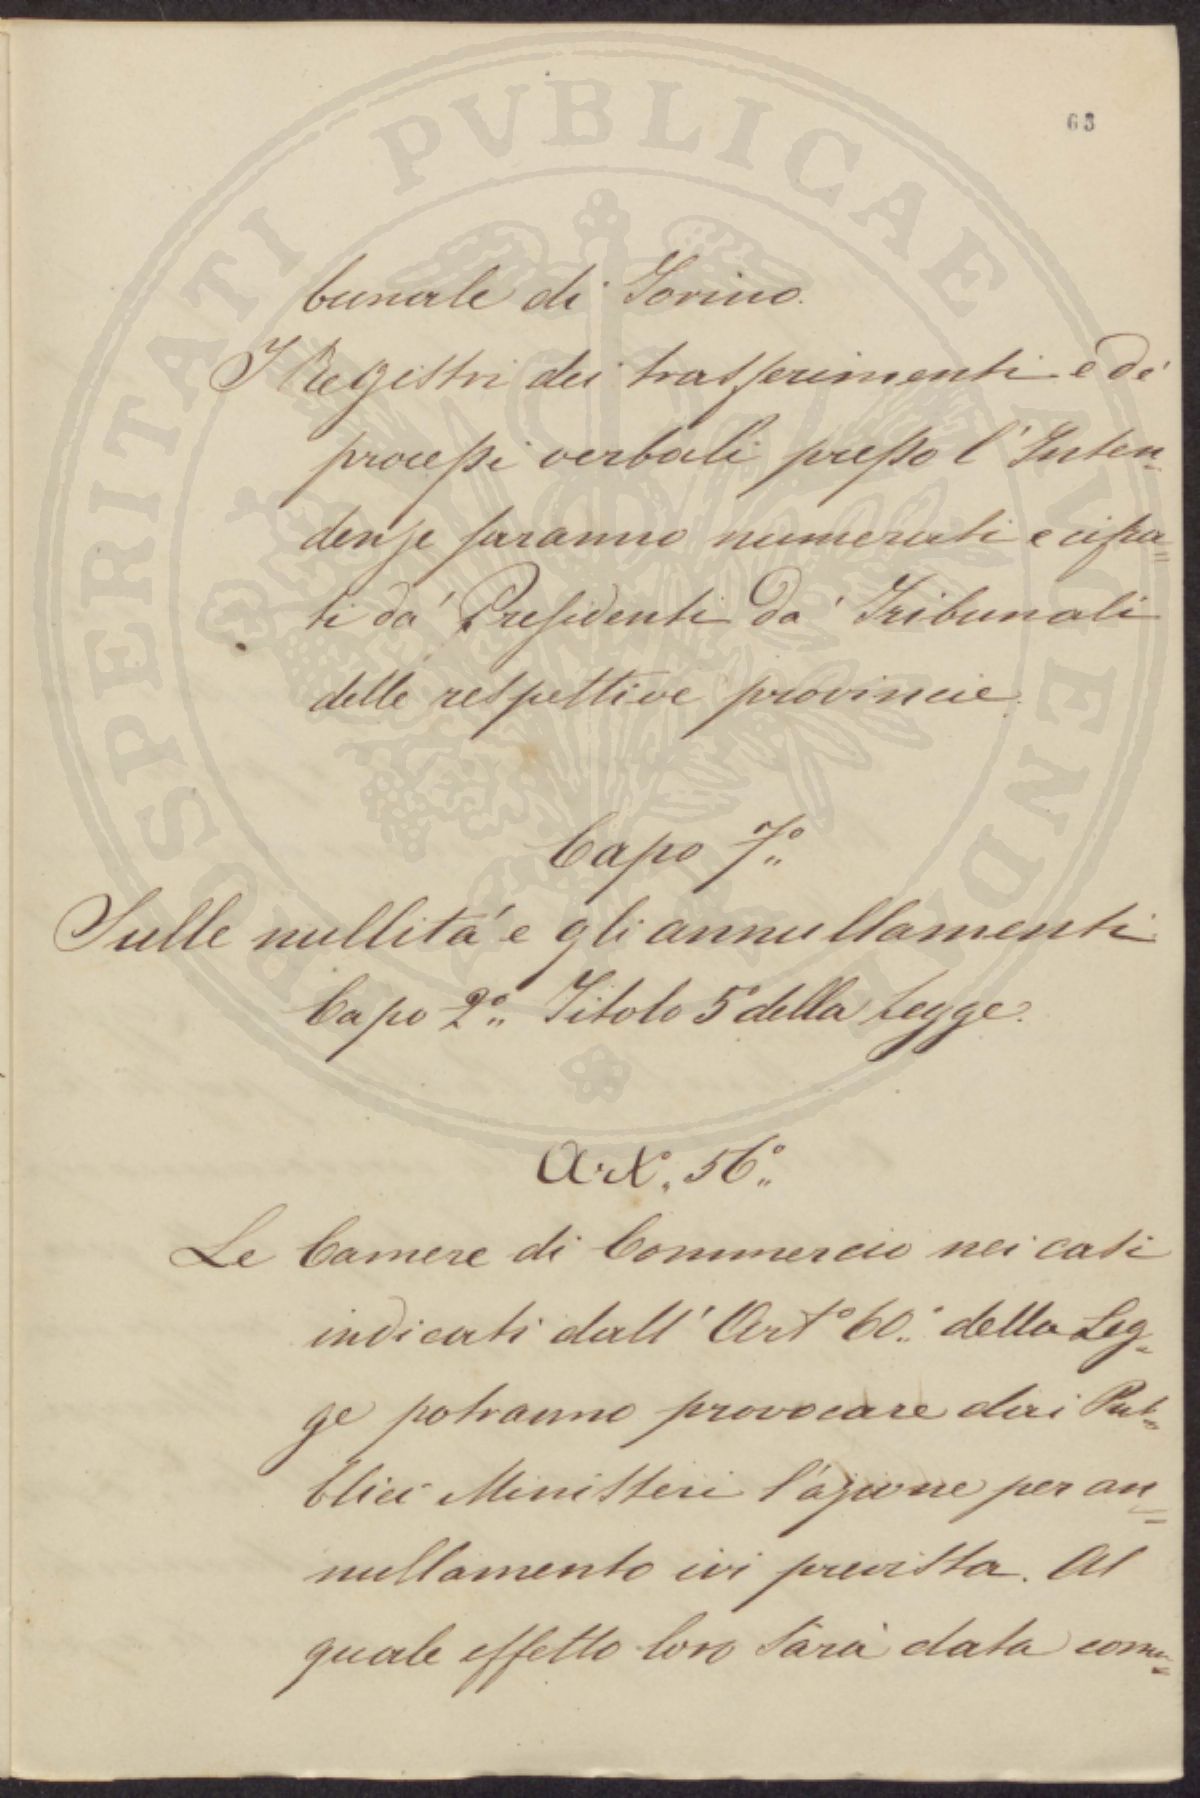 63
PROSPERITATI PVBLICAE AVGENDAE
bunale di Torino.
I Registri dei trasferimenti e de'
processi verbali presso l'Inten=
denze saranno numerati e cifra=
ti da' Presidenti da' Tribunali
delle respettive provincie.
Capo 7°.
Sulle nullità e gli annullamenti
Capo 2°. Titolo 5° della Legge.
Art°. 56°.
Le Camere di Commercio nei casi
indicati dall'Art° 60.° della Leg=
ge potranno provocare dai Pub=
blici Ministeri l'azione per an=
nullamento ivi prevista. Al
quale effetto loro sarà data comu=